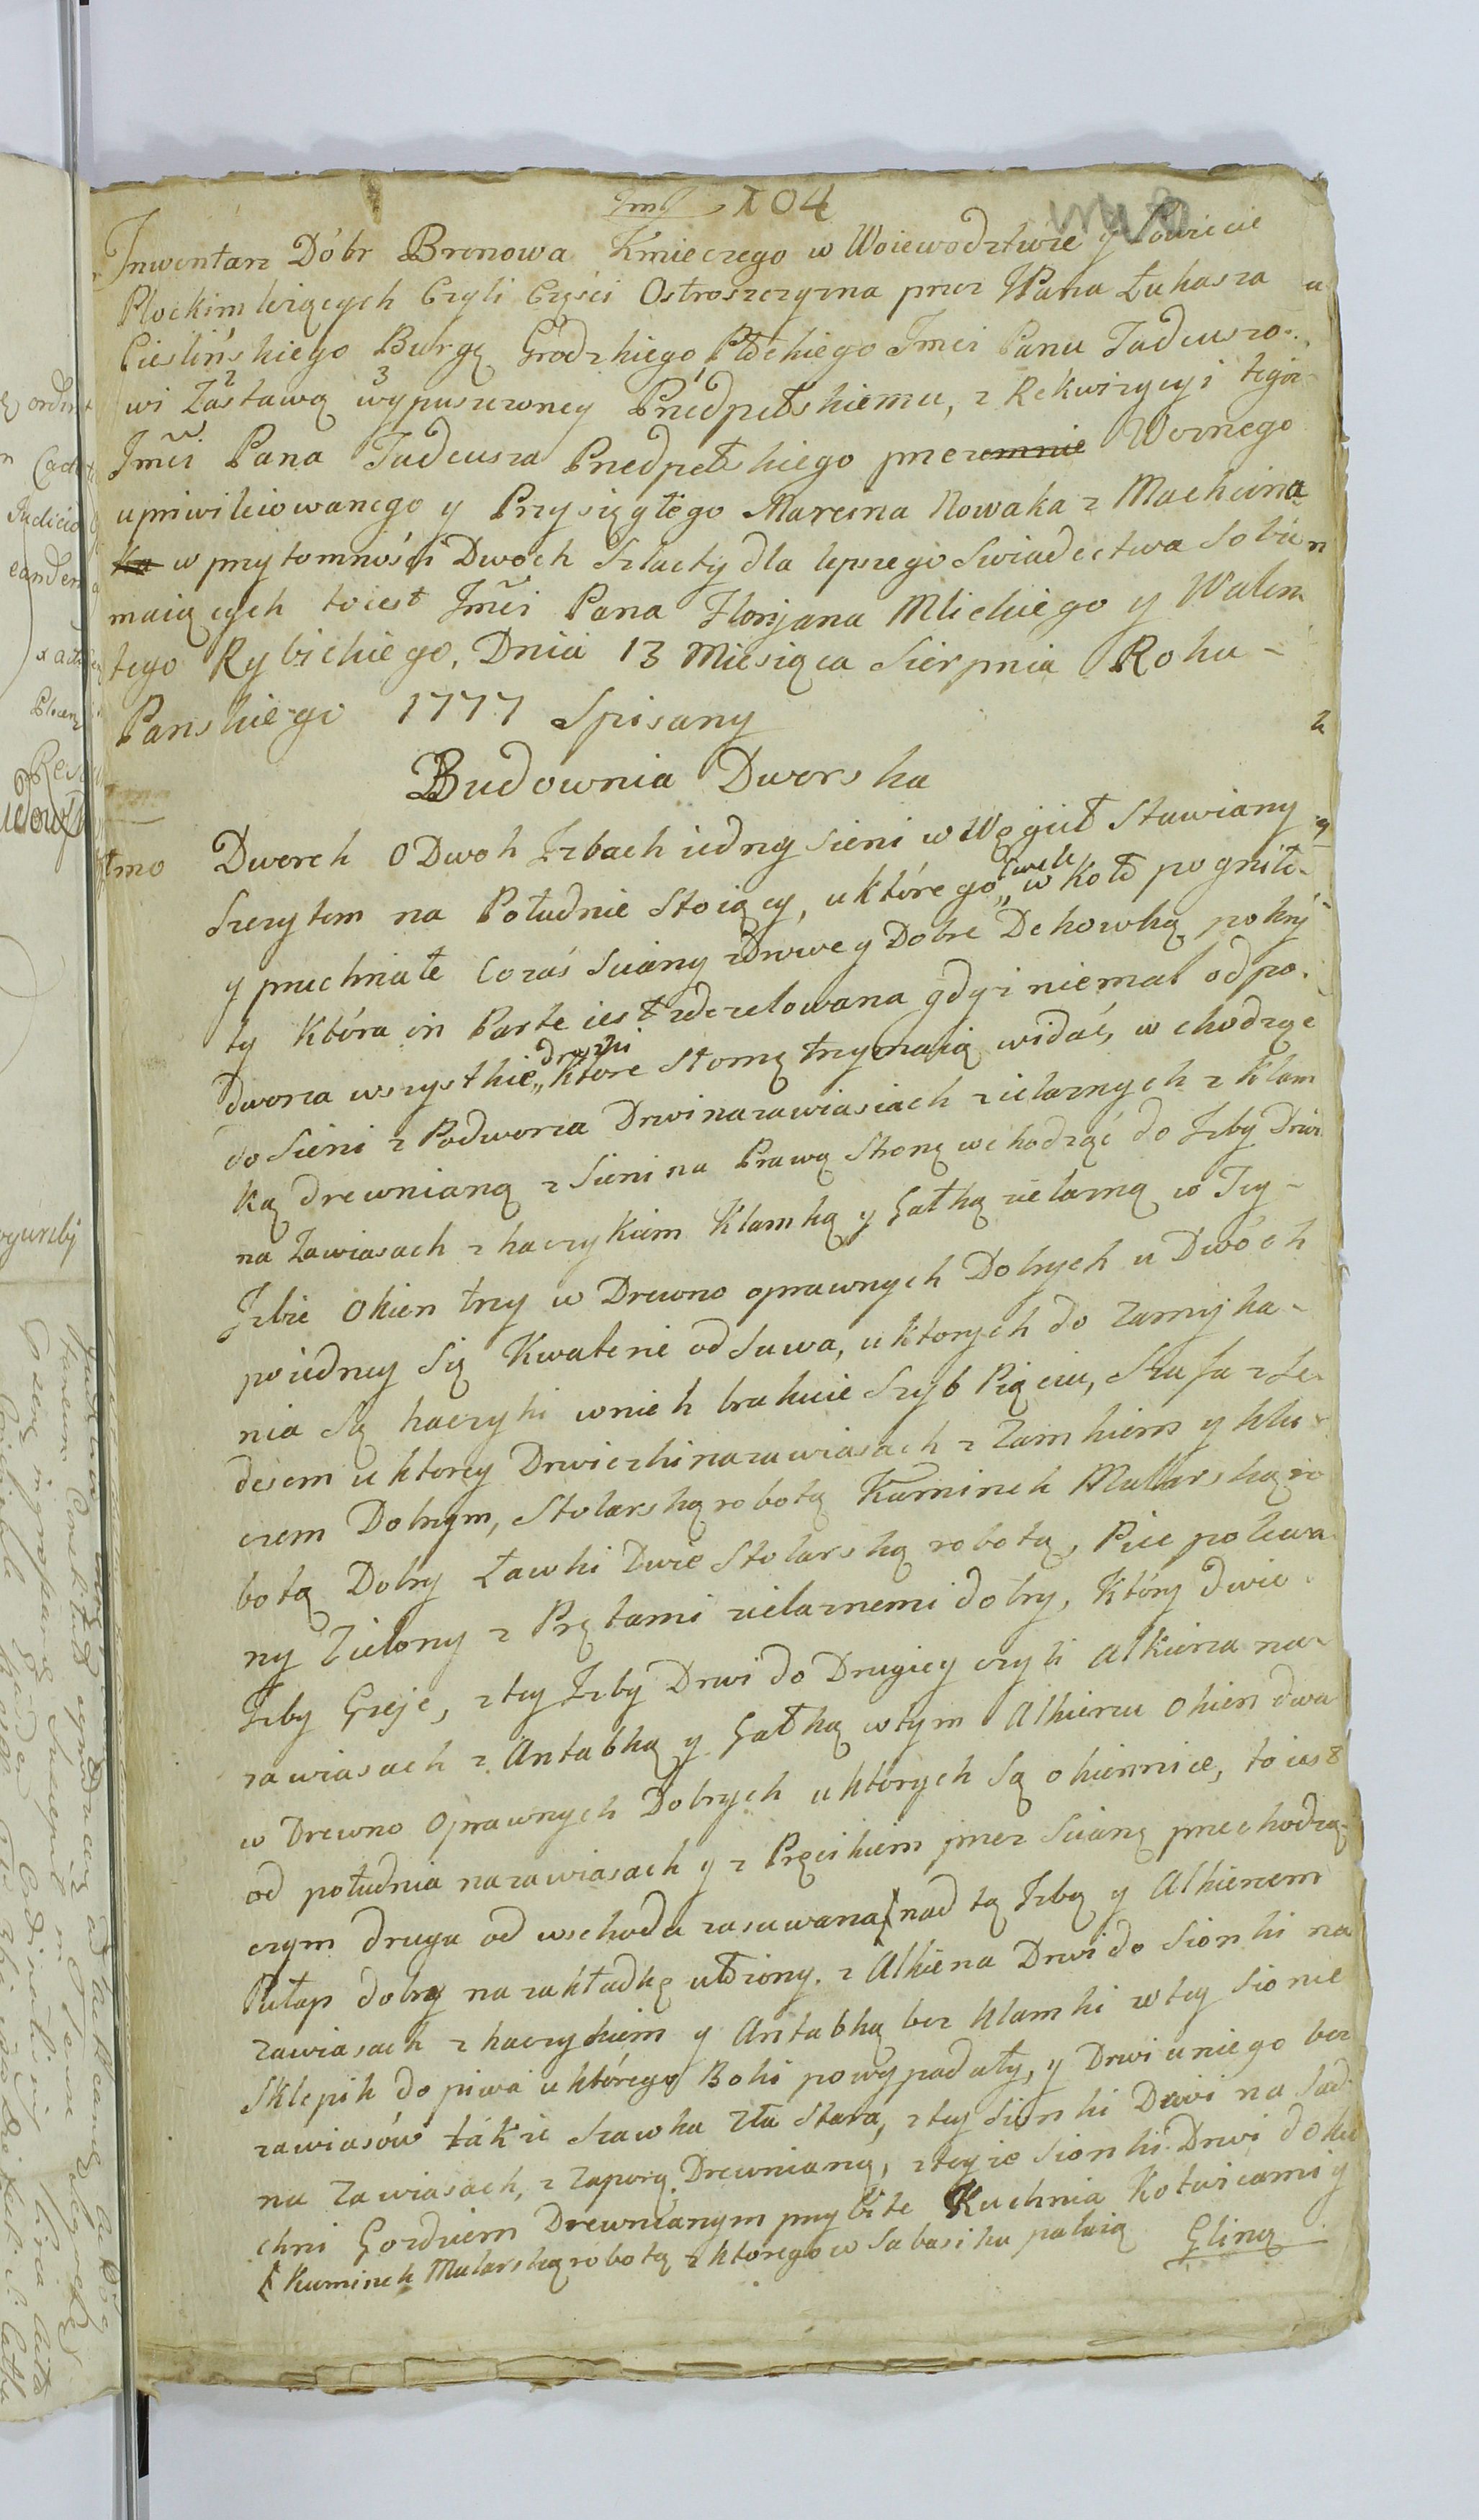 104
Inwentarz Dóbr Bronowa Kmieczego w Woiewodztwie y Powiecie
Płockim leżących Czyli Części Ostroszczyzna przez WPana Łukasza
Cieslińskiego Burgę Grodzkiego Płckiego Jmci Panu Tadeuszo-
wi Zastawą wypuszczoney Przedpełskiemu, z Rekwizycyi tegoż
Jmci Pana Tadeusza Przedpełskiego przezemnie Woznego
upriwileiowanego y Przysięgłego Marcina Nowaka z Machcina
ka w przytomnośći Dwoch Szlachty dla lepszego Swiadectwa Sobie
maiących toiest Jmci Pana Floryana Mlickiego y Walen
tego Rybickiego, Dnia 13 Miesiąca Sierpnia Roku-
Panskiego 1777 Spisany
Budownia Dworska
1mo Dworek o Dwoh Izbach iedney sieni w Węgieł Stawiany
Szczytem na Południe Stoiący, u którego „ cwele w Koło pogniłe
y pruchniałe Cozaś Sciany zdrowe y Dobre Dekowką pokry
ty Która in Parte iest zdezelowana gdyż niemal od po-
dworza wszystkie „ drążki które Słomę trzymaią widać, wchodząc
do Sieni z Podworza Drwi nazawiasiach zielaznych z klam
ką drewnianą z Sieni na Prawą Stronę wchodząć do Izby Drwi
na Zawiasach z haczykiem Klamką y Gałką zielazną w Tey-
Izbie Okien trzy w Drewno oprawnych Dobrych u Dwóch
po iedney Się Kwaterie odsuwa, u ktorych do zamyka-
nia Są haczyki wnich brakuie Szyb Pięciu, Szafa z Je-
desem u ktorey Drwiczki nazawiasach z Zamkiem y klu
czem Dobrym, Stolarską robotą Kominek Mullarską ro
botą Dobry Ławki Dwie Stolarską robotą, Piec polewa
ny Zielony z Prętami zielaznemi dobry, Który dwie
Izby Greje, z tey Izby Drwi do Drugiey czyli Alkierza na-
zawiasach z Antabką y Gałką wtym Alkierzu Okien dwa
w Drewno Oprawnych Dobrych u ktorych Są okiennice, toiest
od południa nazawiasach y z Pręcikiem przez Scianę przechodzą-
czym druga od wschodu zasuwana nad tą Izbą y Alkierzem
Pułap dobry na zakładkę ułożony. z Alkierza Drwi do Sionki na
zawiasach z haczykiem y Antabką bez klamki w tey Sionie
Sklepik do piwa u którego Boki powypadały, y Drwi u niego bez
zawiasów także Szawka Zła Stara, z tey Sionki Drwi na Sad
na Zawiasach, z Zaporą Drewnianą, z teyże Sionki Drwi do ku
chni Gozdziem Drewnianym przybite Kuchnia Kotwicami y
Kominek Mularską robotą z ktorego w Sabasiku palaią Gliną